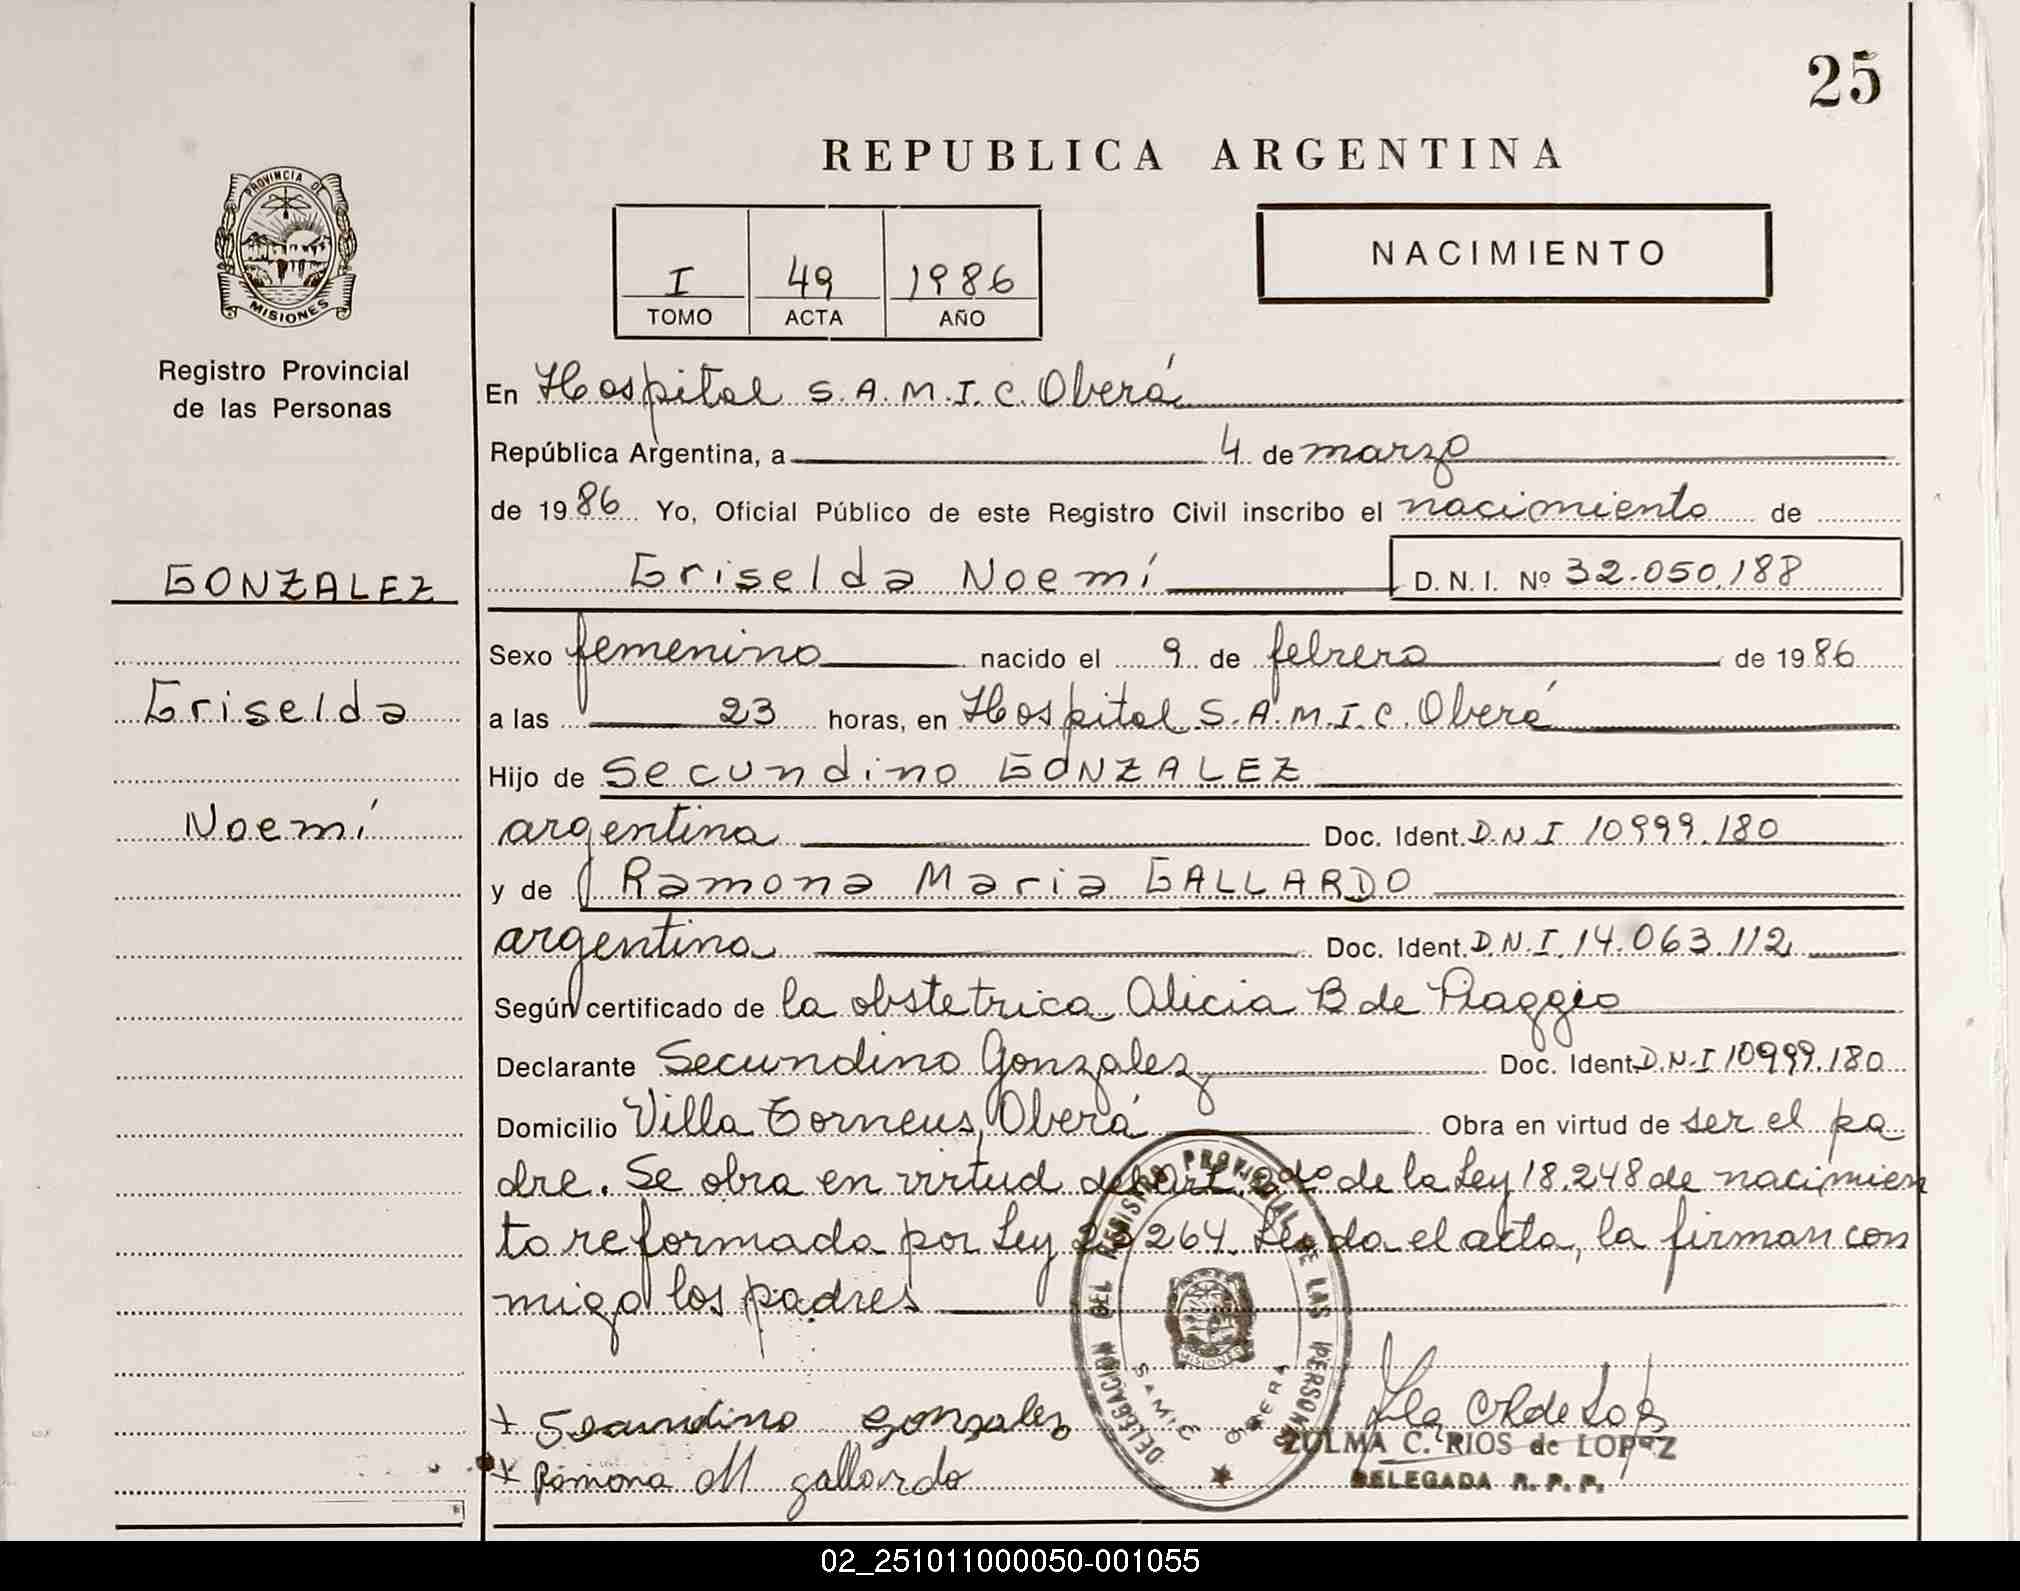 25
REPUBLICA ARGENTINA
PROVINCIA DE
MISIONES
Registro Provincial
de las Personas
I 49 1986
TOMO ACTA AÑO
NACIMIENTO
En Hospital S.A.M.I.C. Oberá
República Argentina, a 4 de marzo
de 1986 Yo, Oficial Público de este Registro Civil inscribo el nacimiento de
GONZALEZ
Griselda Noemí D. N. I. Nº 32.050.188
Sexo femenino nacido el 9 de febrero de 1986
Griselda
a las 23 horas, en Hospital S.A.M.I.C. Oberá
Hijo de Secundino GONZALEZ
Noemí
argentina Doc. Ident. D.N.I 10999.180
y de Ramona Maria GALLARDO
argentina Doc. Ident. D.N.I. 14.063.112
Según certificado de la obstetrica Alicia B de Piaggio
Declarante Secundino Gonzalez Doc. Ident. D.N.I 10999.180
Domicilio Villa Oberá Obra en virtud de ser el pa
dre. Se obra en virtud del Art. 2do de la Ley 18.248 de nacimien
to reformada por Ley 23264. Leída el acta, la firman con
migo los padres
DELEGACION DEL REGISTRO PROVINCIAL DE LAS PERSONAS
MISIONES
+ Secundino Gonzalez
+ Ramona M gallardo
ZULMA C. RIOS de LOPEZ
DELEGADA R. P. P.
02_251011000050-001055